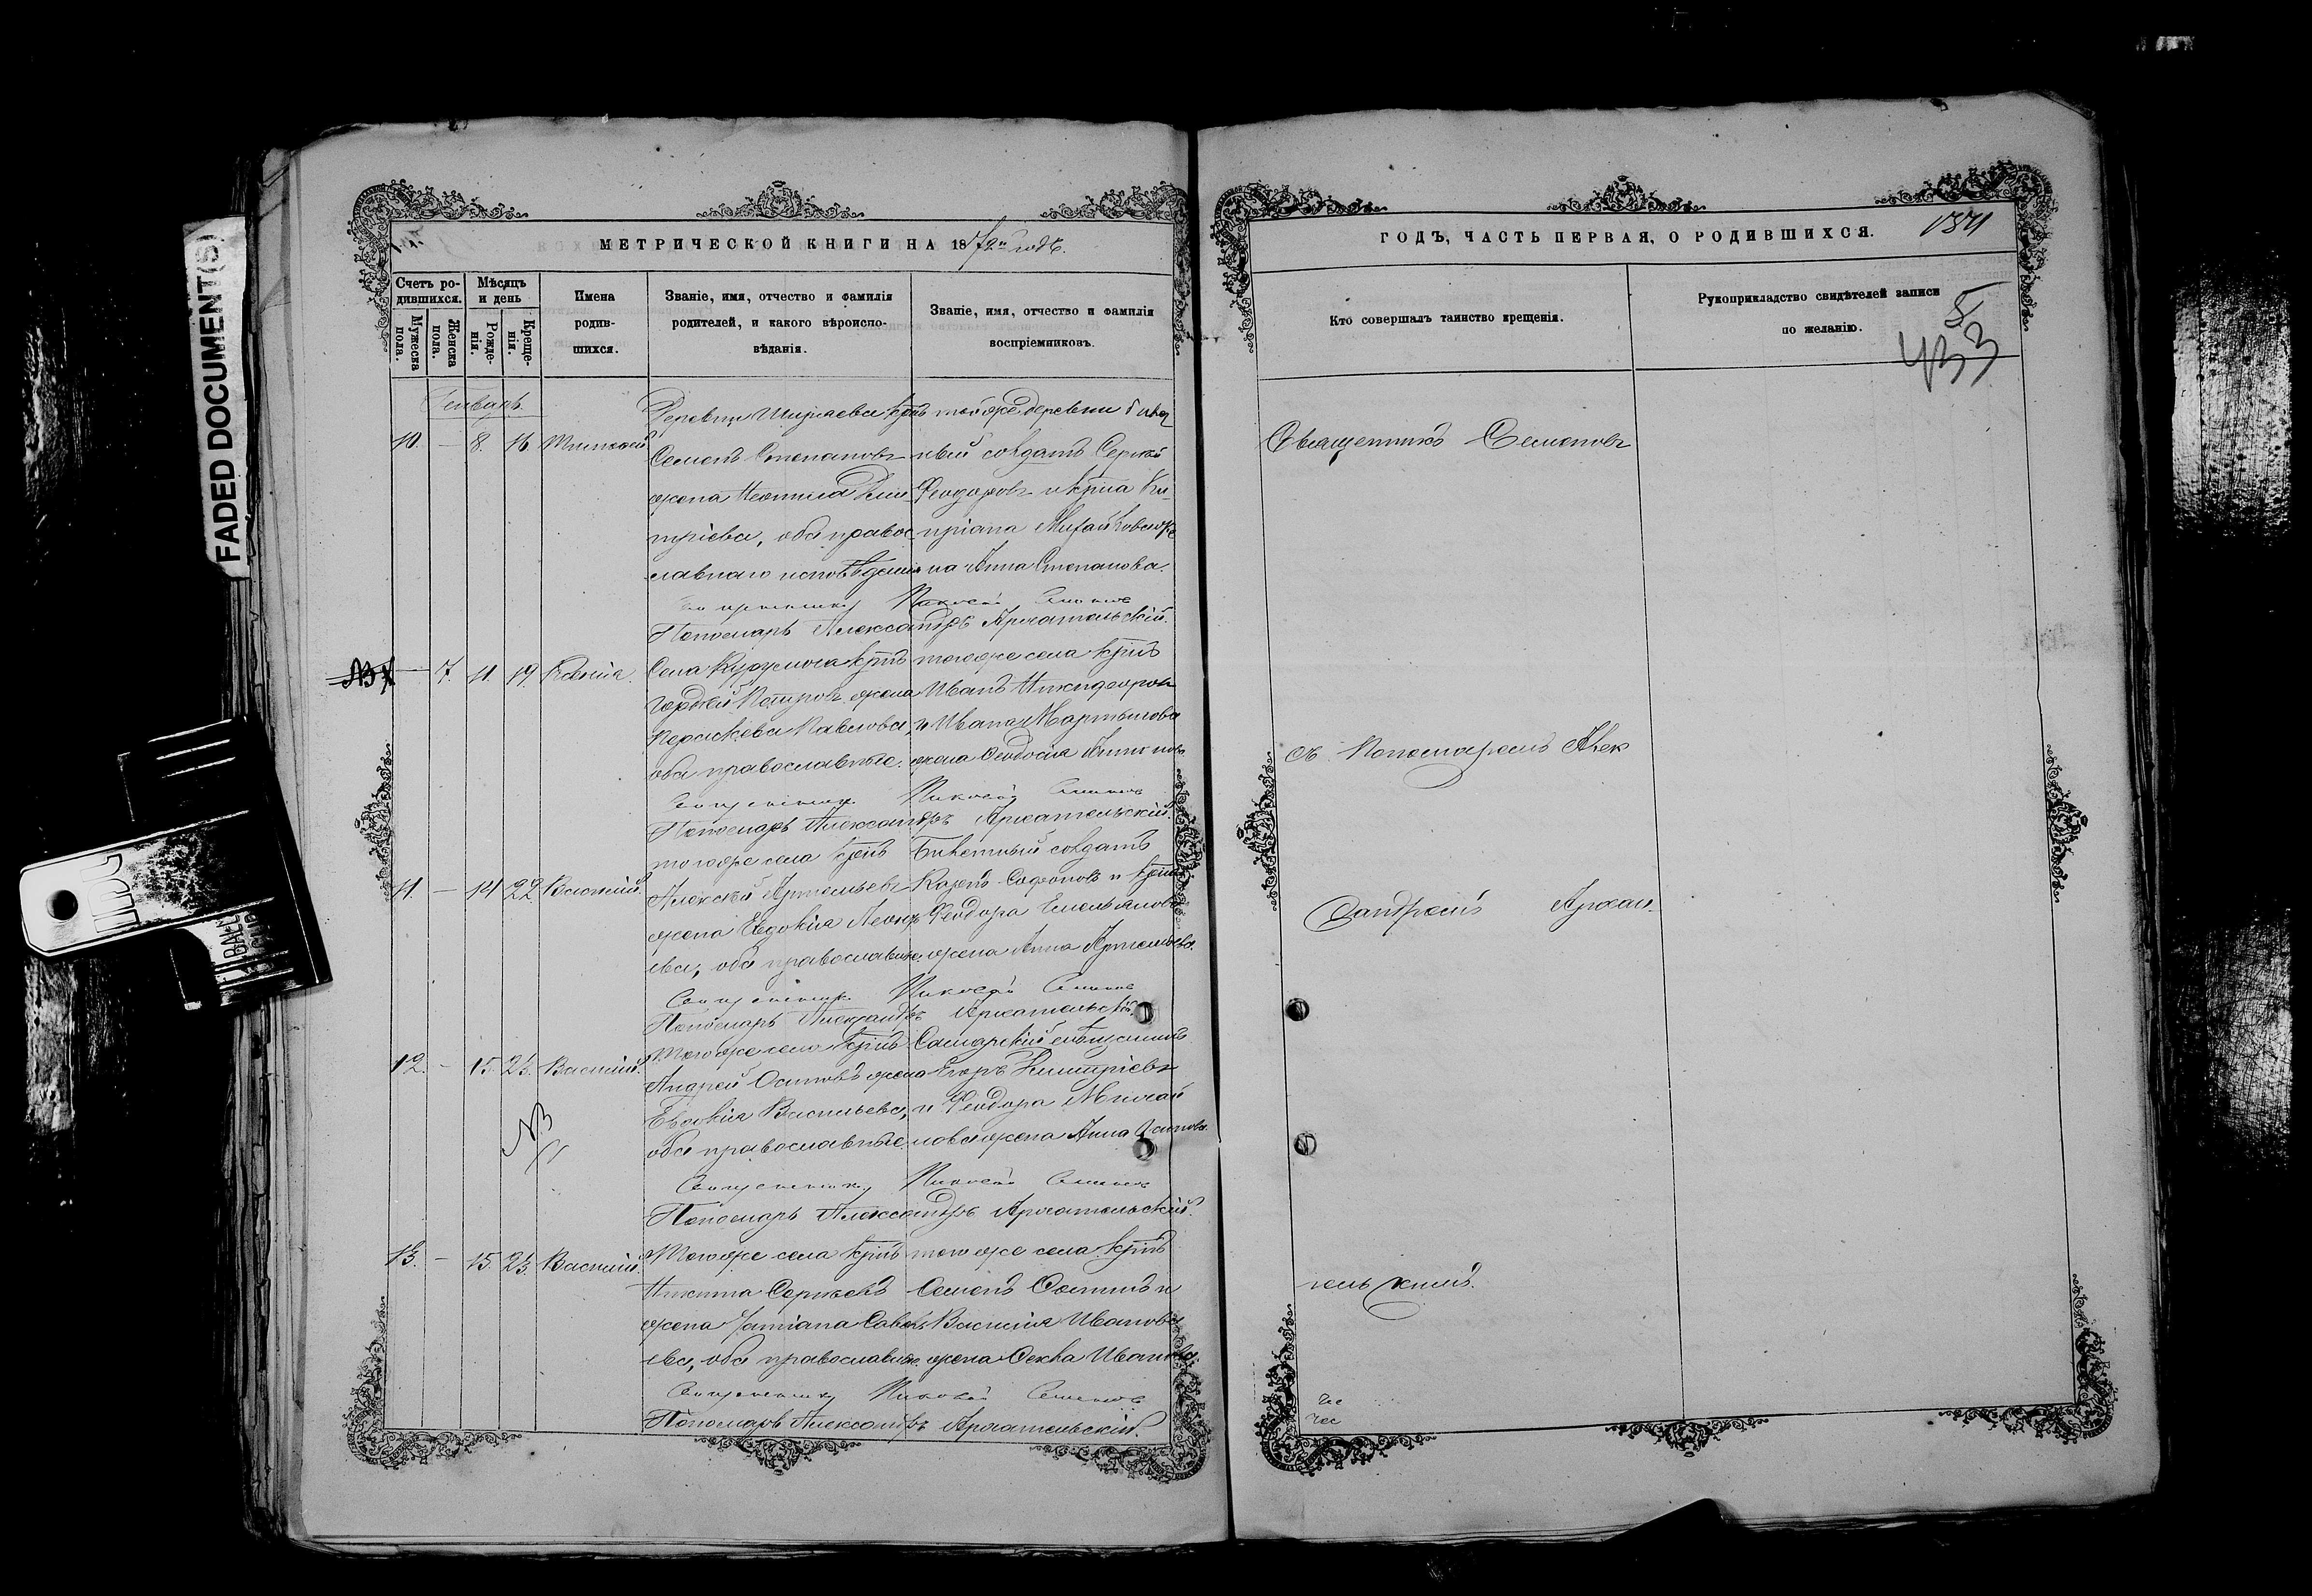 FADED DOCUMENT(S)
МЕТРИЧЕСКОЙ КНИГИ НА 1872й годъ.
Счетъ ро-
дившихся.
Мужеска
пола.
Женска
пола.
Мѣсяцъ
и день
Рожде-
нія.
Креще-
нія.
Имена
родив-
шихся.
Званіе, имя, отчество и фамилія
родителей, и какого вѣроиспо-
вѣданія.
Званіе, имя, отчество и фамилія
воспріемниковъ.
Генварь.
10. — 8. 16.
Деревни Ширяева крнъ
Семенъ Степановъ
жена Дими-
тріева, оба правос
славнаго исповѣданія
тойже деревни билет
ный солдатъ Сергѣй
Феодоровъ и крна Ки-
пріана Михайлова же
на Анна Степанова.
Священникъ Николай Семеновъ
Пономарь Александръ Архангельскій.
— 7. 11. 19. Ксенія.
Села Курумоча крнъ
Гордѣй Петровъ жена
Параскева Павлова,
оба православные.
тогоже села крнъ
Иванъ Никифоровъ
и Ивана Мартынова
жена Феодосія
Священникъ Николай Семеновъ
Пономарь Александръ Архангельскій.
11. — 14 22 Василій.
тогоже села крнъ
Алексѣй Артемьевъ
жена Евдокія Леонть
ева, оба православные
Билетный солдатъ
Софоновъ и крна
Феодора Емельянова
жена Анна Артемьева.
Священникъ Николай Семеновъ
Пономарь Александръ Архангельскій.
12. — 15. 23. Василій.
NB
Тогоже села крнъ
Андрей Осиповъ жена
Евдокія Васильева,
оба православные
Самарскій мѣщанинъ
Егоръ Димитріевъ
и Феодора Михай
лова жена Анна
Священникъ Николай Семеновъ
Пономарь Александръ Архангельскій.
13. — 15. 23. Василій.
Тогоже села крнъ
Никита Сергѣевъ
жена Татіана Савель
ева, оба православные
того же села крнъ
Семенъ Осиповъ и
Василія Иванова
жена Фекла Иванова.
Священникъ Николай Семеновъ
Пономарь Александръ Архангельскій.
ГОДЪ, ЧАСТЬ ПЕРВАЯ, О РОДИВШИХСЯ.
Кто совершалъ таинство крещенія.
Рукоприкладство свидѣтелей записи
по желанію.
433
Священникъ Семеновъ
съ Пономаремъ Алек
сандромъ Архан-
гельскимъ.